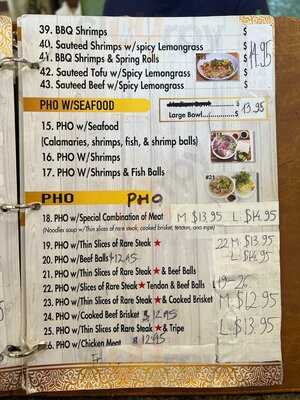 39. BBQ Shrimps $
40. Sauteed Shrimps w/spicy Lemongrass $
41. BBQ Shrimps & Spring Rolls $ 14.95
42. Sauteed Tofu w/Spicy Lemongrass $
43. Sauteed Beef w/Spicy Lemongrass $
PHO W/SEAFOOD
Medium Bowl
Large Bowl 13.95
15. PHO w/Seafood
(Calamaries, shrimps, fish, & shrimp balls)
16. PHO W/Shrimps
17. PHO W/Shrimps & Fish Balls
#21
PHO PHO
18. PHO w/Special Combination of Meat M $13.95 L $14.95
(Noodles soup w/Thin slices of rare steak, cooked brisket, tendon, and tripe)
19. PHO w/Thin Slices of Rare Steak ★ 22 M $13.95
20. PHO w/Beef Balls $12.95 L $14.95
21. PHO w/Thin Slices of Rare Steak ★ & Beef Balls
22. PHO w/Slices of Rare Steak ★ Tendon & Beef Balls 19-26
23. PHO w/Thin Slices of Rare Steak ★ & Cooked Brisket M $12.95
24. PHO w/Cooked Beef Brisket $12.95
25. PHO w/Thin Slices of Rare Steak ★ & Tripe L $13.95
26. PHO w/Chicken Meat $12.95